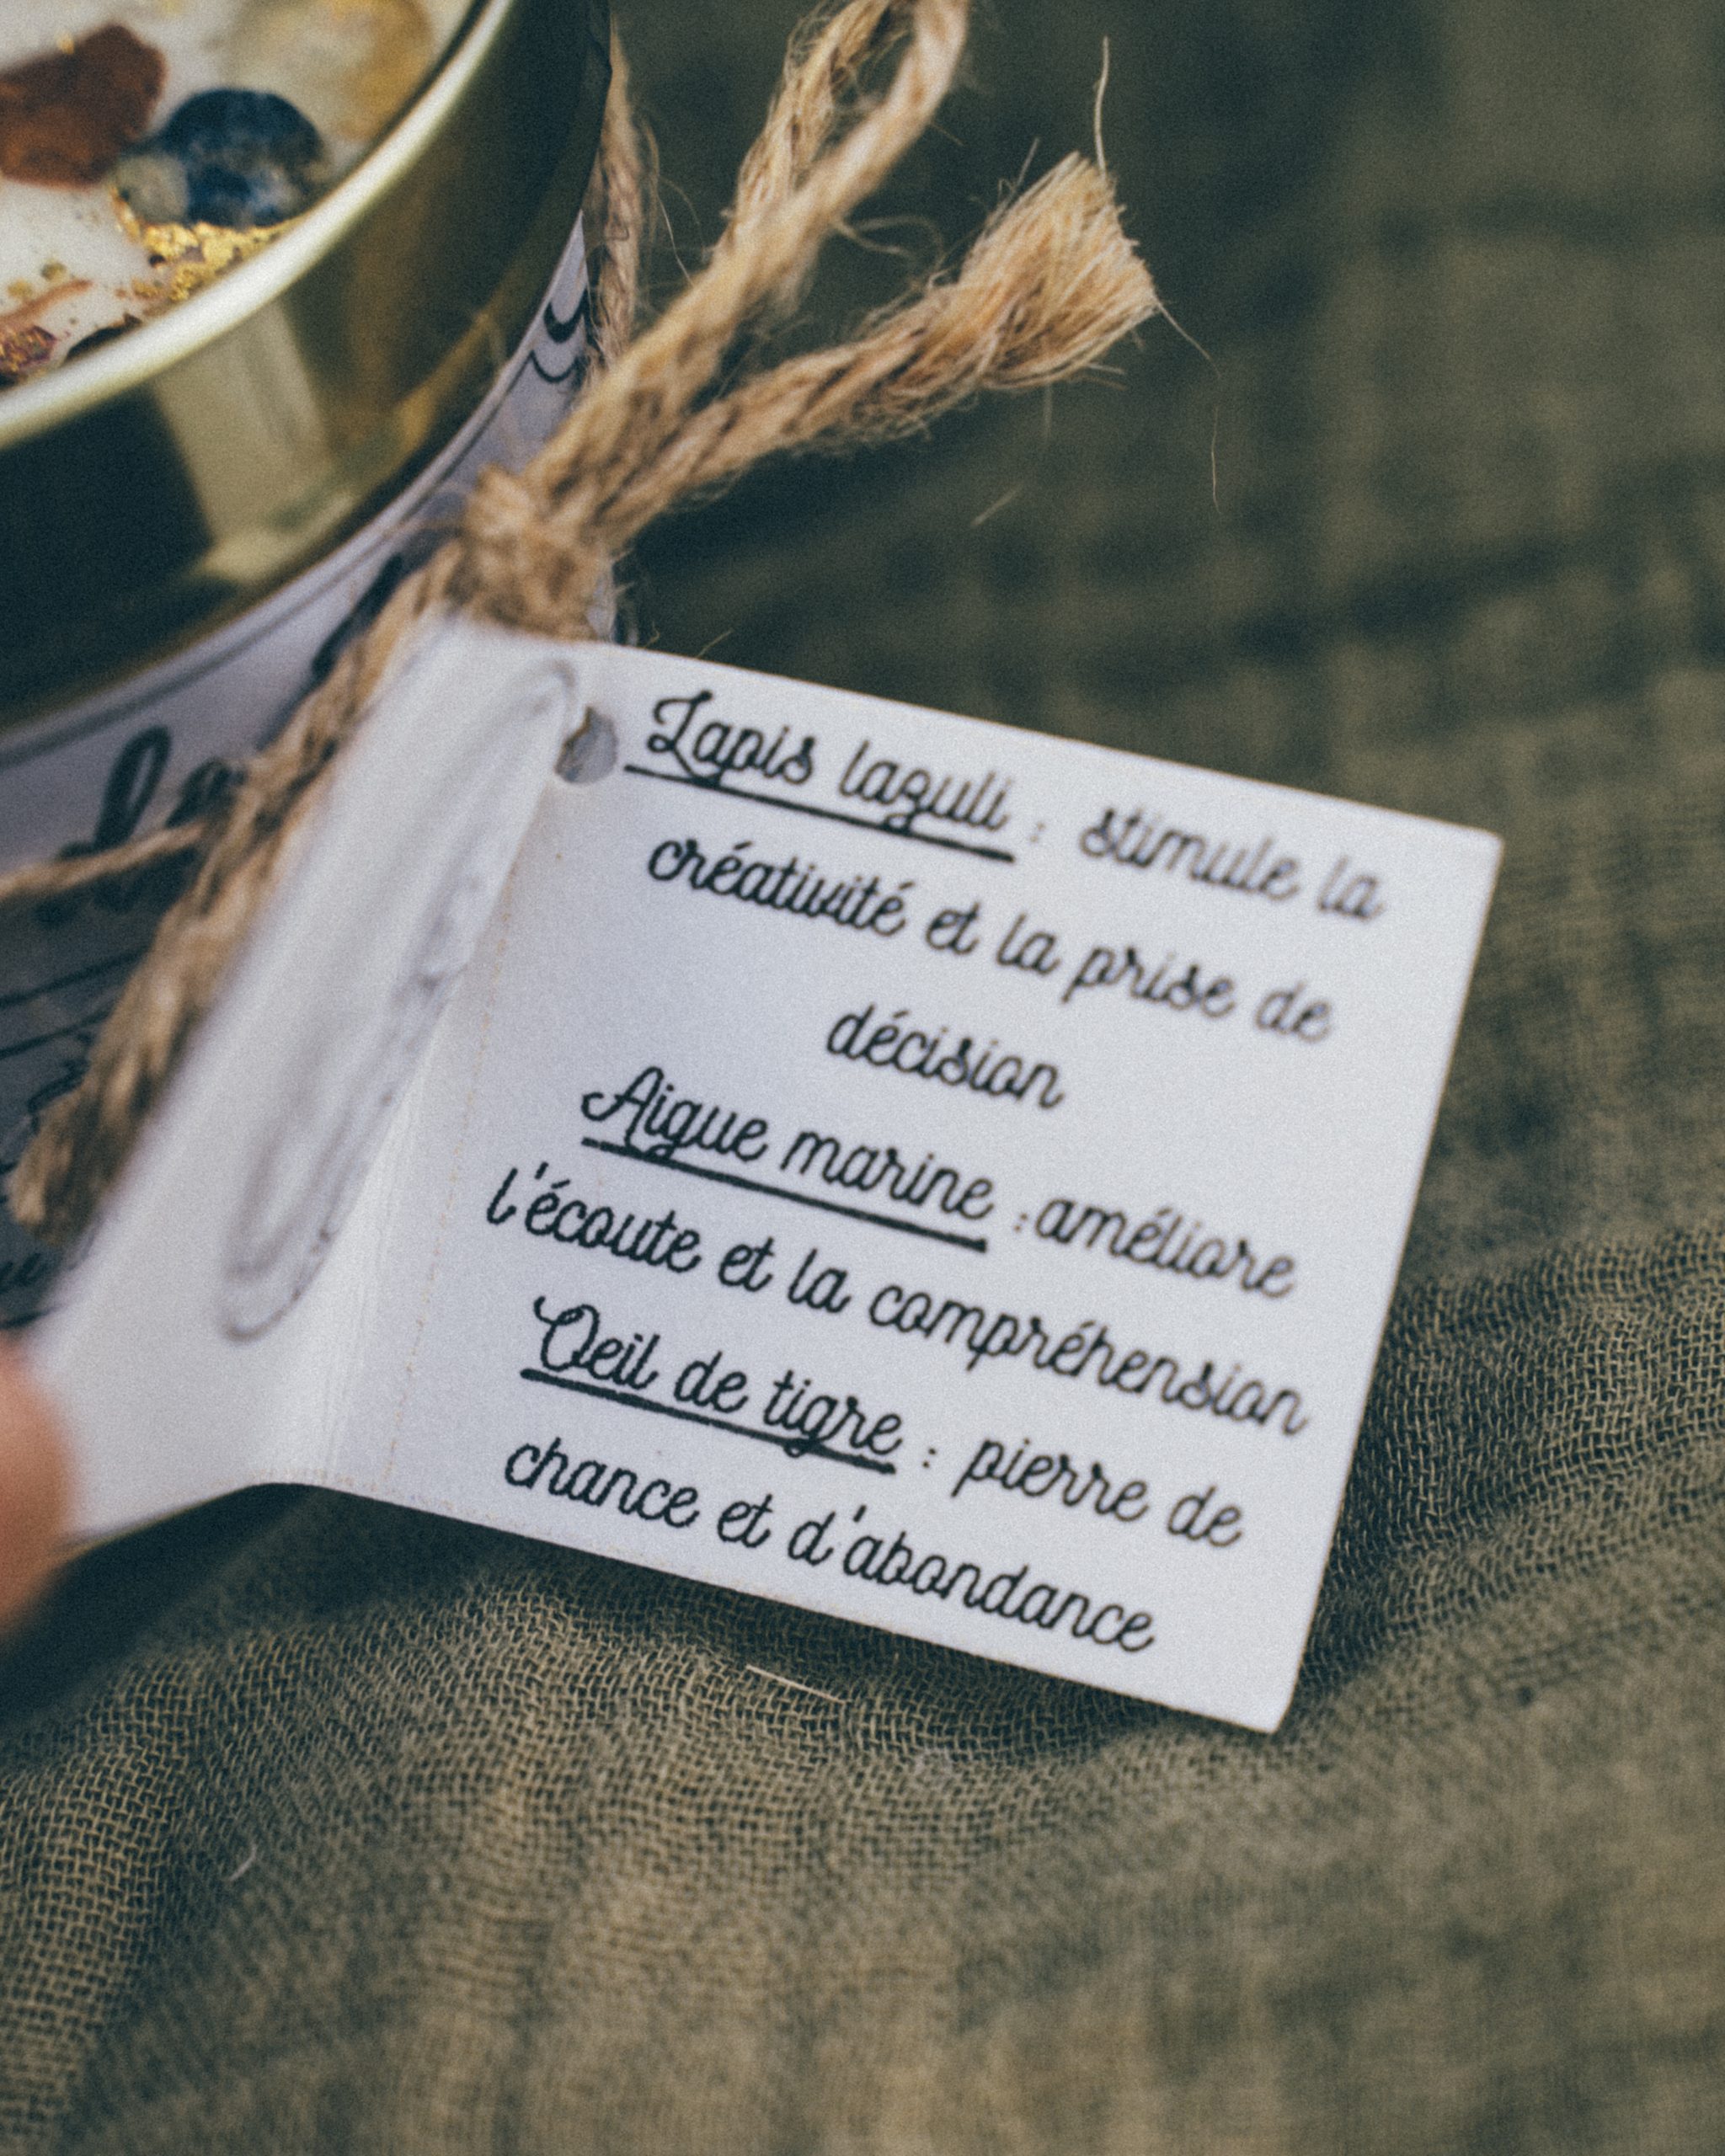 Lapis lazuli : stimule la
créativité et la prise de
décision
Aigue marine : améliore
l'écoute et la compréhension
Oeil de tigre : pierre de
chance et d'abondance